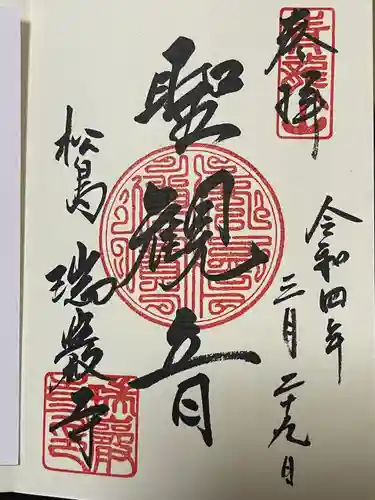 奉拝
令和四年
三月二十九日
聖観音
松島
瑞巌寺